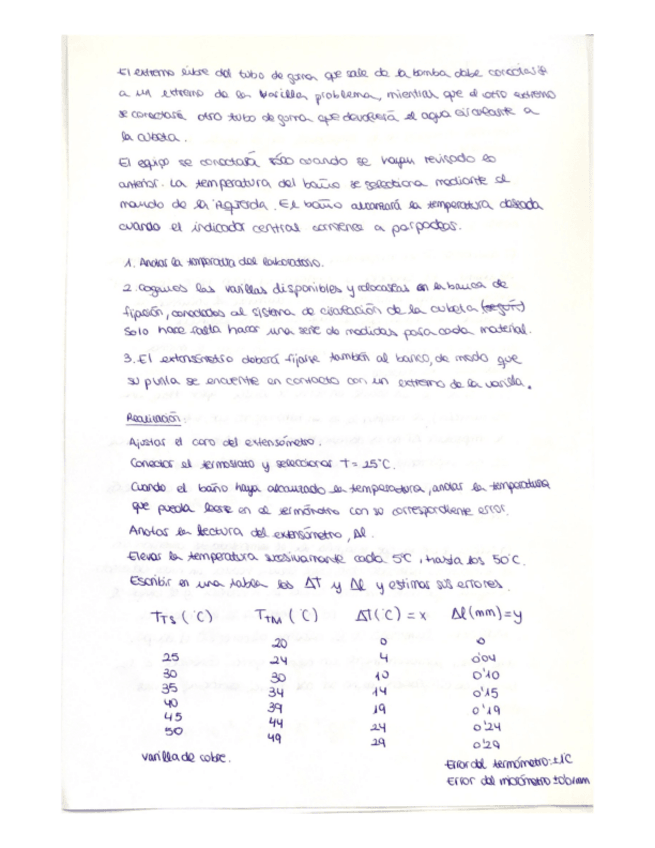 El extremo libre del tubo de goma que sale de la bomba debe conectarse
a un extremo de la varilla problema, mientras que el otro extremo
se conectará otro tubo de goma que devolverá el agua circulante a
la cubeta.
El equipo se conectará sólo cuando se hayan revisado lo
anterior. La temperatura del baño se selecciona mediante el
mando de la izquierda. El baño alcanzará la temperatura deseada
cuando el indicador central comience a parpadear.
1. Anotar la temperatura del laboratorio.
2. Cogemos las varillas disponibles y colocarlas en la banca de
fijación, conectadas al sistema de circulación de la cubeta (según)
Solo hace falta hacer una serie de medidas para cada material.
3. El extensómetro deberá fijarse también al banco, de modo que
su punta se encuentre en contacto con un extremo de la varilla.
Realización:
Ajustar el cero del extensómetro.
Conectar el termostato y seleccionar T = 25°C.
Cuando el baño haya alcanzado la temperatura, anotar la temperatura
que pueda leerse en el termómetro con su correspondiente error.
Anotar la lectura del extensómetro, Δl.
Elevar la temperatura sucesivamente cada 5°C, hasta los 50°C.
Escribir en una tabla los ΔT y Δl y estimar sus errores.
TTS (°C) TTM (°C) ΔT(°C) = x Δl (mm) = y
20 0 0
25 24 4 0'04
30 30 10 0'10
35 34 14 0'15
40 39 19 0'19
45 44 24 0'24
50 49 29 0'29
varilla de cobre.
Error del termómetro: ±1°C
Error del micrómetro ±0'01mm